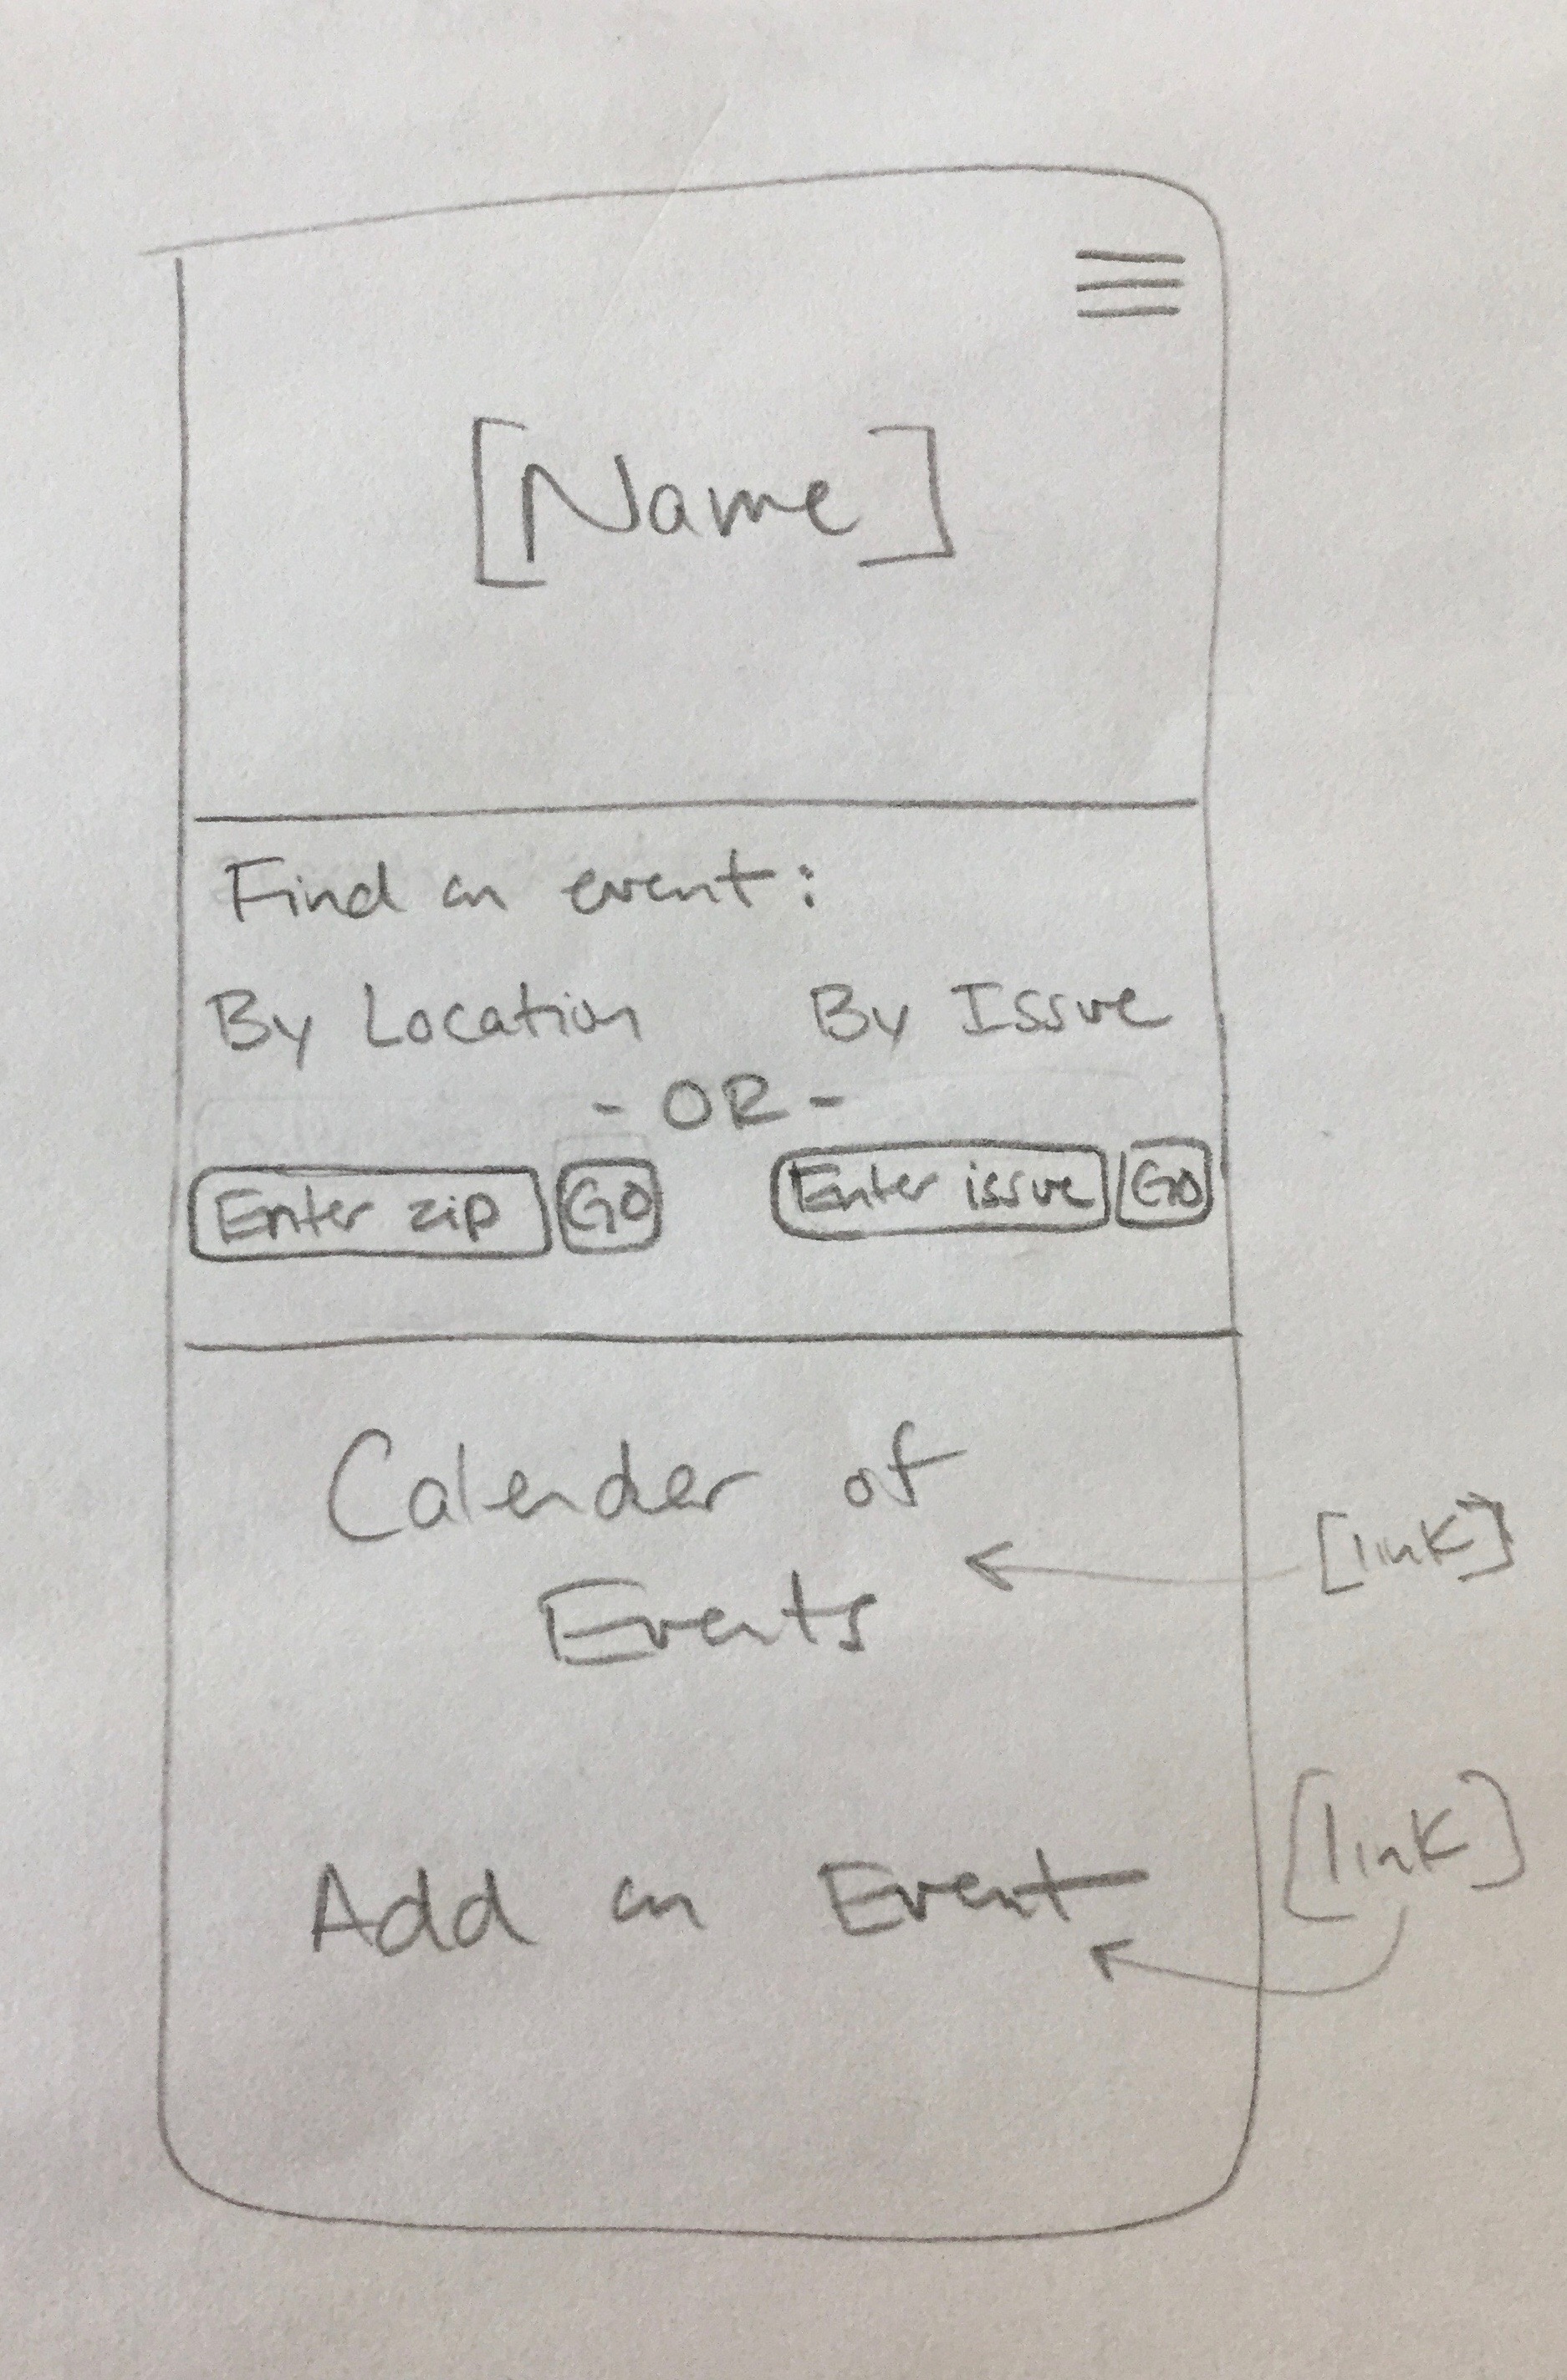 [Name]
Find an event:
By Location By Issue
- OR -
Enter zip GO Enter issue GO
Calender of
Events
[link]
Add an Event
[link]